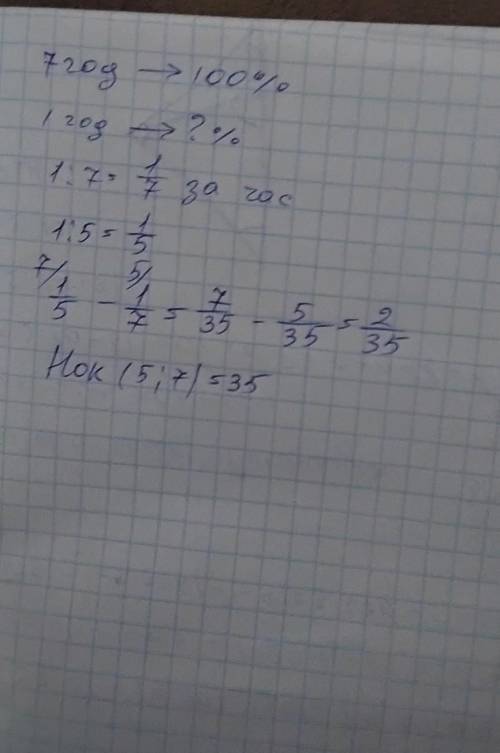 7 год → 100%
1 год → ?%
1:7 = 1/7 за час
1:5 = 1/5
7/ 1/5 - 5/ 1/7 = 7/35 - 5/35 = 2/35
Нок (5;7) = 35